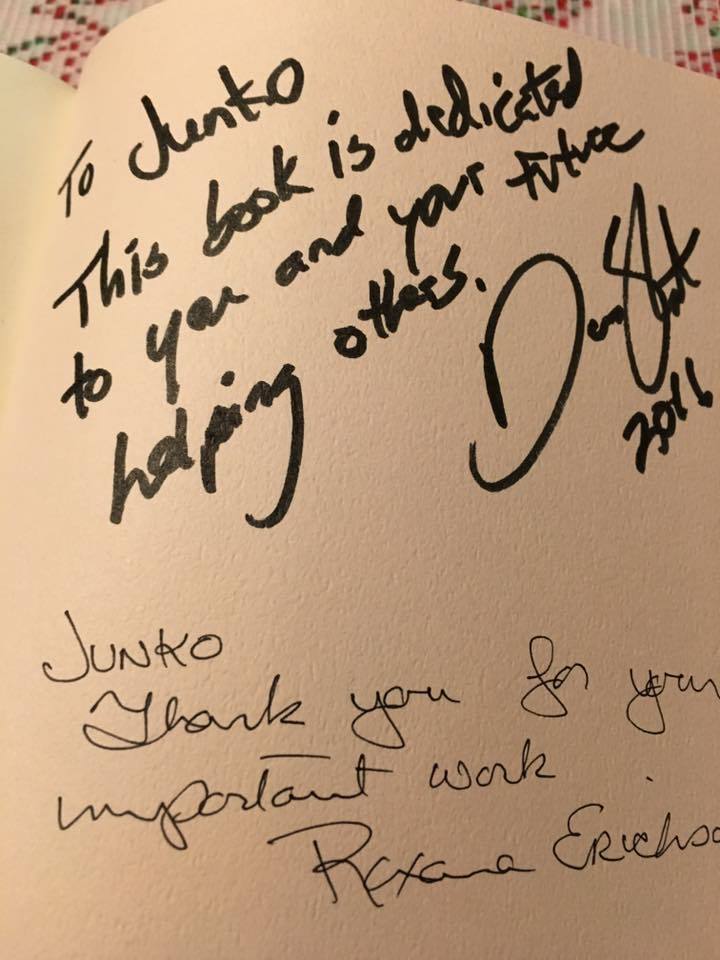 To Junko
This book is dedicated
to you and your future
helping others.
Dan
2016
JUNKO
Thank you for your
important work.
Roxana Erickso